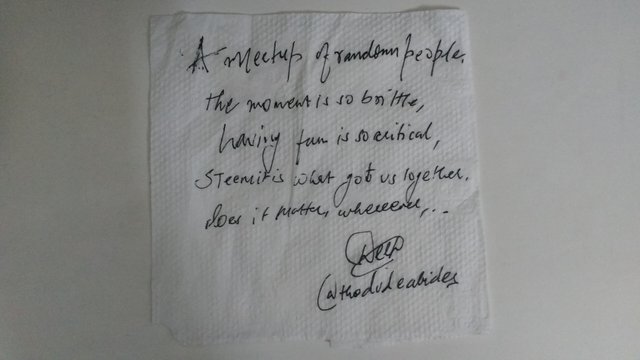 A meetup of random people.
the moment is so brittle,
having fun is so critical,
Steemit is what got us together.
does it matter, wherever,...
@thedudeabides